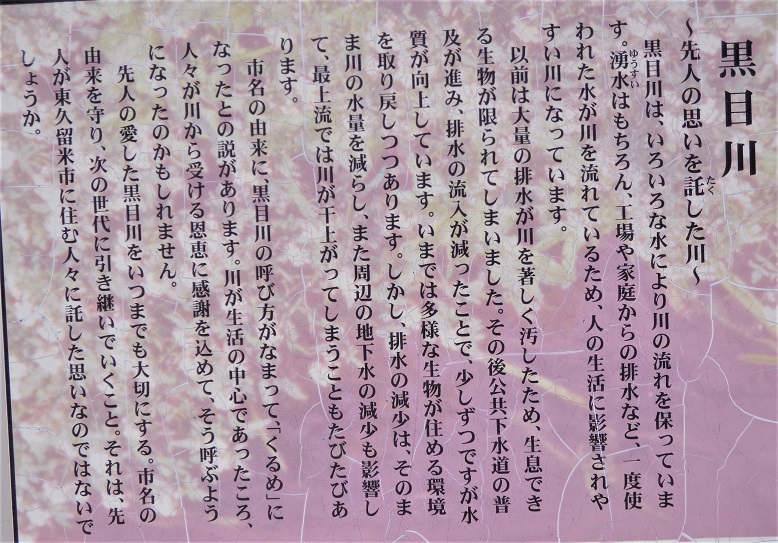 黒目川
～先人の思いを託した川～
たく
黒目川は、いろいろな水により川の流れを保っていま
す。湧水はもちろん、工場や家庭からの排水など、一度使
ゆうすい
われた水が川を流れているため、人の生活に影響されや
すい川になっています。
以前は大量の排水が川を著しく汚したため、生息でき
る生物が限られてしまいました。その後公共下水道の普
及が進み、排水の流入が減ったことで、少しずつですが水
質が向上しています。いまでは多様な生物が住める環境
を取り戻しつつあります。しかし、排水の減少は、そのま
ま川の水量を減らし、また周辺の地下水の減少も影響し
て、最上流では川が干上がってしまうこともたびたびあ
ります。
市名の由来に、黒目川の呼び方がなまって、「くるめ」に
なったとの説があります。川が生活の中心であったころ、
人々が川から受ける恩恵に感謝を込めて、そう呼ぶよう
になったのかもしれません。
先人の愛した黒目川をいつまでも大切にする。市名の
由来を守り、次の世代に引き継いでいくこと。それは、先
人が東久留米市に住む人々に託した思いなのではないで
しょうか。